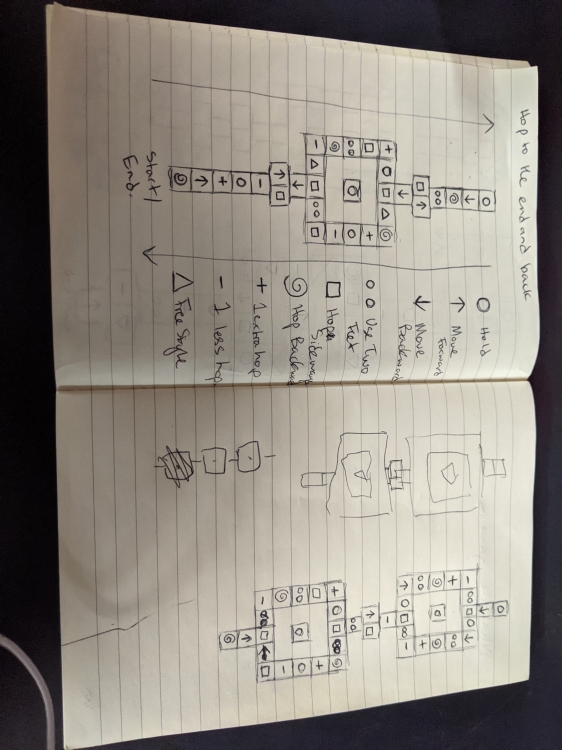 Hop to the end and back
Start/
End.
Hold
Move
Forward
Move
Backward
Use Two
Feet
Hop
Sideway
Hop Backward
+ 1 extra hop
- 1 less hop
Free Style